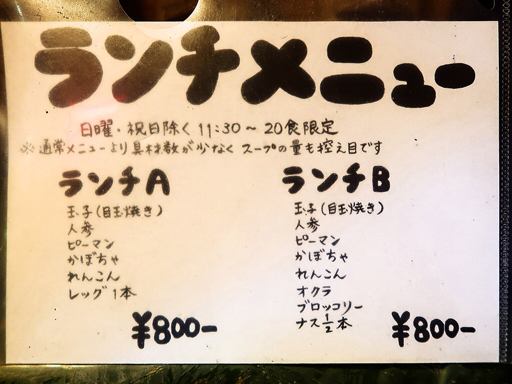 ランチメニュー
日曜・祝日除く 11:30～ 20食限定
※通常メニューより具材数が少なく スープの量も控え目です
ランチA
玉子(目玉焼き)
人参
ピーマン
かぼちゃ
れんこん
レッグ1本
¥800-
ランチB
玉子(目玉焼き)
人参
ピーマン
かぼちゃ
れんこん
オクラ
ブロッコリー
ナス½本
¥800-